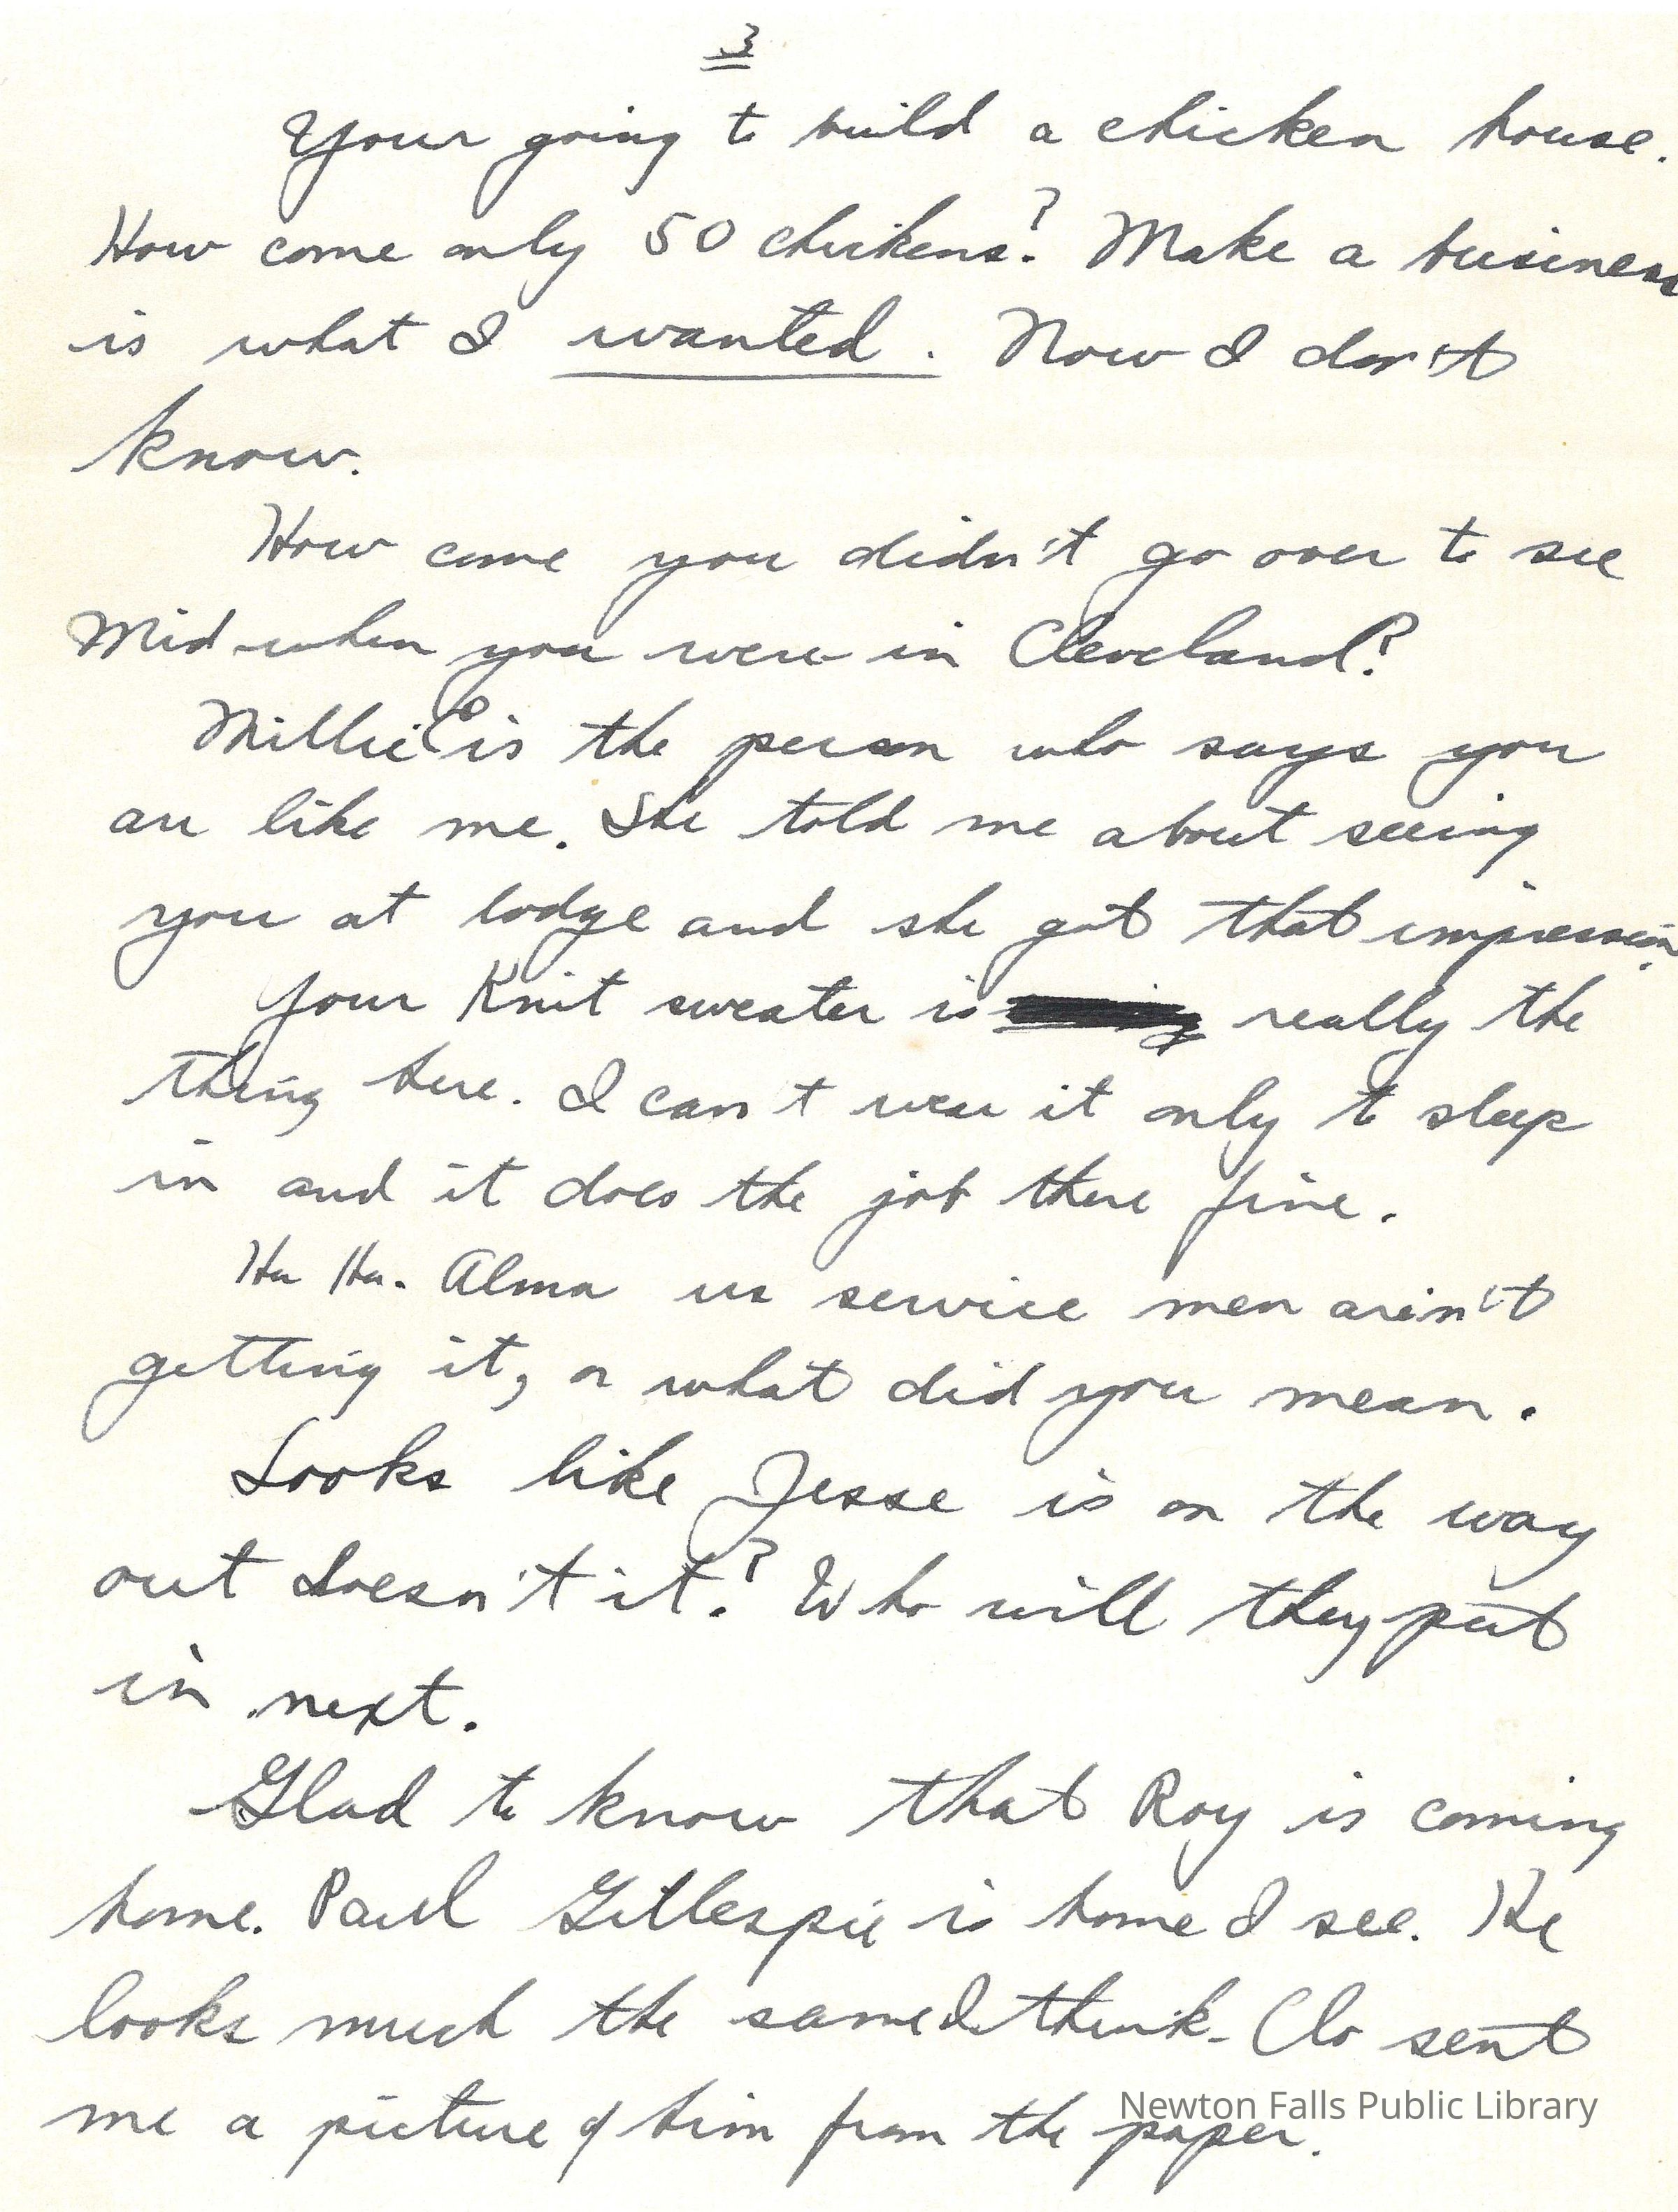 3
Your going to build a chicken house.
How come only 50 chickens? Make a business
is what I wanted. Now I don't
know.
How come you didn't go over to see
Mid when you were in Cleveland?
Millie C is the person who says you
are like me. She told me about seeing
you at lodge and she got that impression.
Your Knit sweater is really the
thing here. I can't wear it only to sleep
in and it does the job there fine.
Ha Ha. Alma us service men aren't
getting it, or what did you mean.
Looks like Jesse is on the way
out doesn't it? Who will they put
in next.
Glad to know that Roy is coming
home. Paul Gillespie is home I see. He
looks much the same I think. Clo sent
me a picture of him from the paper.
Newton Falls Public Library